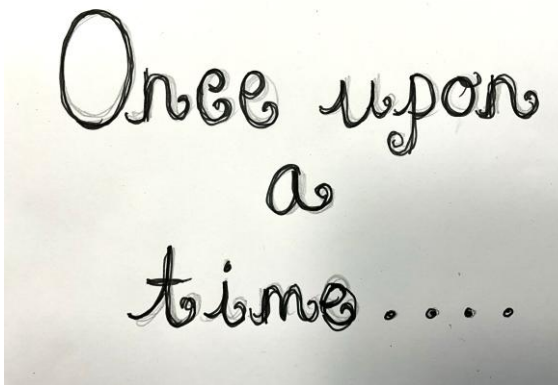 Once upon
a
time....